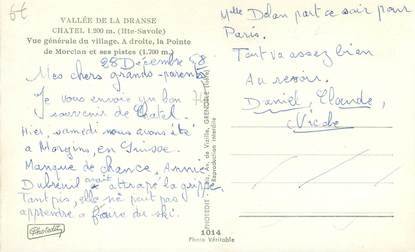 VALLÉE DE LA DRANSE
CHATEL 1.200 m. (Hte-Savoie)
Vue générale du village. A droite, la Pointe
de Morclan et ses pistes (1.700 m.)
28 Décembre 58
Mes chers grands-parents
Je vous envoie un bon
souvenir de Chatel.
Hier, samedi nous avons été
à Morgins, en Suisse.
Manque de chance, Annie
Dubreuil avait attrapé la grippe.
Tant pis, elle ne peut pas
apprendre à faire du ski.
Photedit
PHOTEDIT
Av. de Vizille, GRENOBLE (Isère)
Reproduction interdite
1014
Photo Véritable
Melle Dolan part ce soir pour
Paris.
Tout va assez bien
Au revoir.
Daniel, Claude,
Nicole